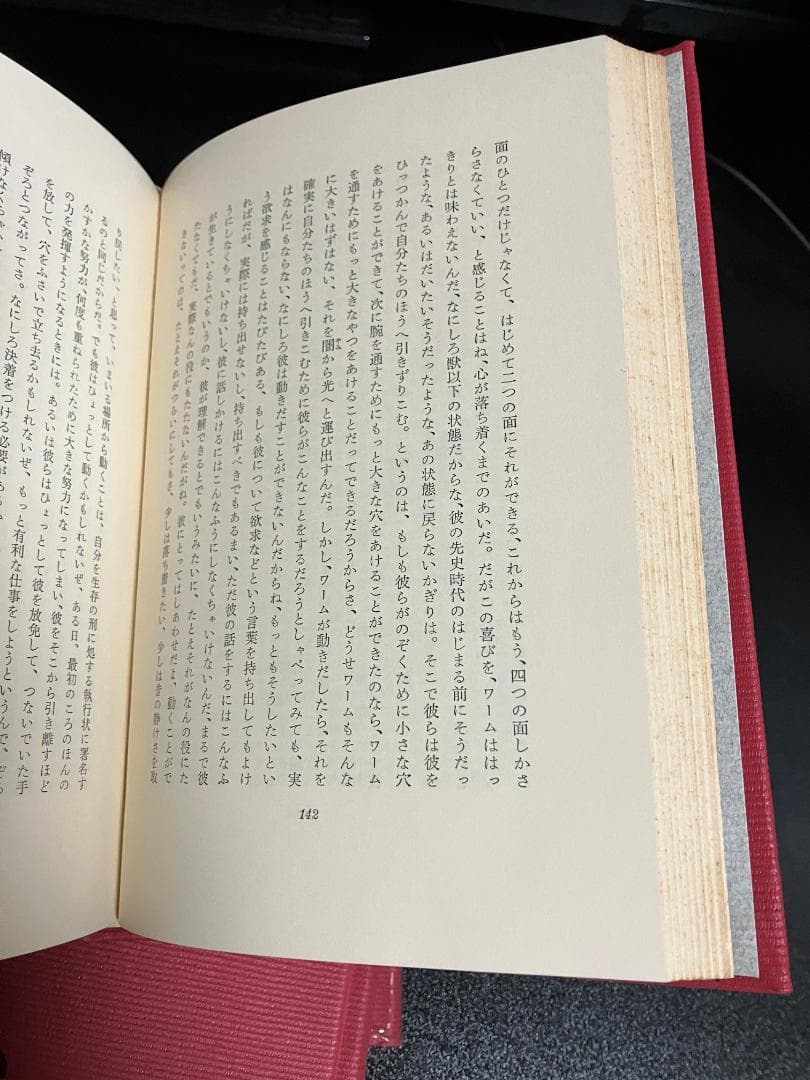 面のひとつだけじゃなくて、はじめて二つの面にそれができる、これからはもう、四つの面しかさ
らさなくていい、と感じることはね、心が落ち着くまでのあいだ。だがこの喜びを、ワームははっ
きりとは味わえないんだ、なにしろ獣以下の状態だからな、彼の先史時代のはじまる前にそうだっ
たような、あるいはだいたいそうだったような、あの状態に戻らないかぎりは。そこで彼らは彼を
ひっつかんで自分たちのほうへ引きずりこむ。というのは、もしも彼らがのぞくために小さな穴
をあけることができて、次に腕を通すためにもっと大きな穴をあけることができたのなら、ワーム
を通すためにもっと大きなやつをあけることだってできるだろうからさ、どうせワームもそんな
に大きいはずはない、それを闇から光へと運び出すんだ。しかし、ワームが動きだしたら、それを
確実に自分たちのほうへ引きこむために彼らがこんなことをするだろうとしゃべってみても、実
はなんにもならない、なにしろ彼は動きだすことができないんだからね、もっともそうしたいとい
う欲求を感じることはたびたびある、もしも彼について欲求などという言葉を持ち出してもよけ
ればだが、実際には持ち出せないし、持ち出すべきでもあるまい、ただ彼の話をするにはこんなふ
うにしなくちゃいけないし、彼に話しかけるにはこんなふうにしなくちゃいけないんだ、まるで彼
が生きているとでもいうのか、彼が理解できるとでもいうみたいに、たとえそれがなんの役にた
たなくてもだ、実際なんの役にもたたないんだがね。彼にとってはしあわせだよ、動くことがで
きないってのは、たとえそれがつらいにしてもさ、少しは落ち着きたい、少しは昔の静けさを取
142
り戻したい、と思って、いまいる場所から動くことは、自分を生存の刑に処する執行状に署名す
るのと同じだからだ。でも彼はひょっとして動くかもしれないぜ、ある日、最初のころのほんの
かすかな努力が、何度も重ねられたために大きな努力になってしまい、彼をそこから引き離すほど
の力を発揮するようになるときには。あるいは彼らはひょっとして彼を放免して、つないでいた手
を放して、穴をふさいで立ち去るかもしれないぜ、もっと有利な仕事をしようというんで、
ぞろとつながってさ。なにしろ決着をつける必要が